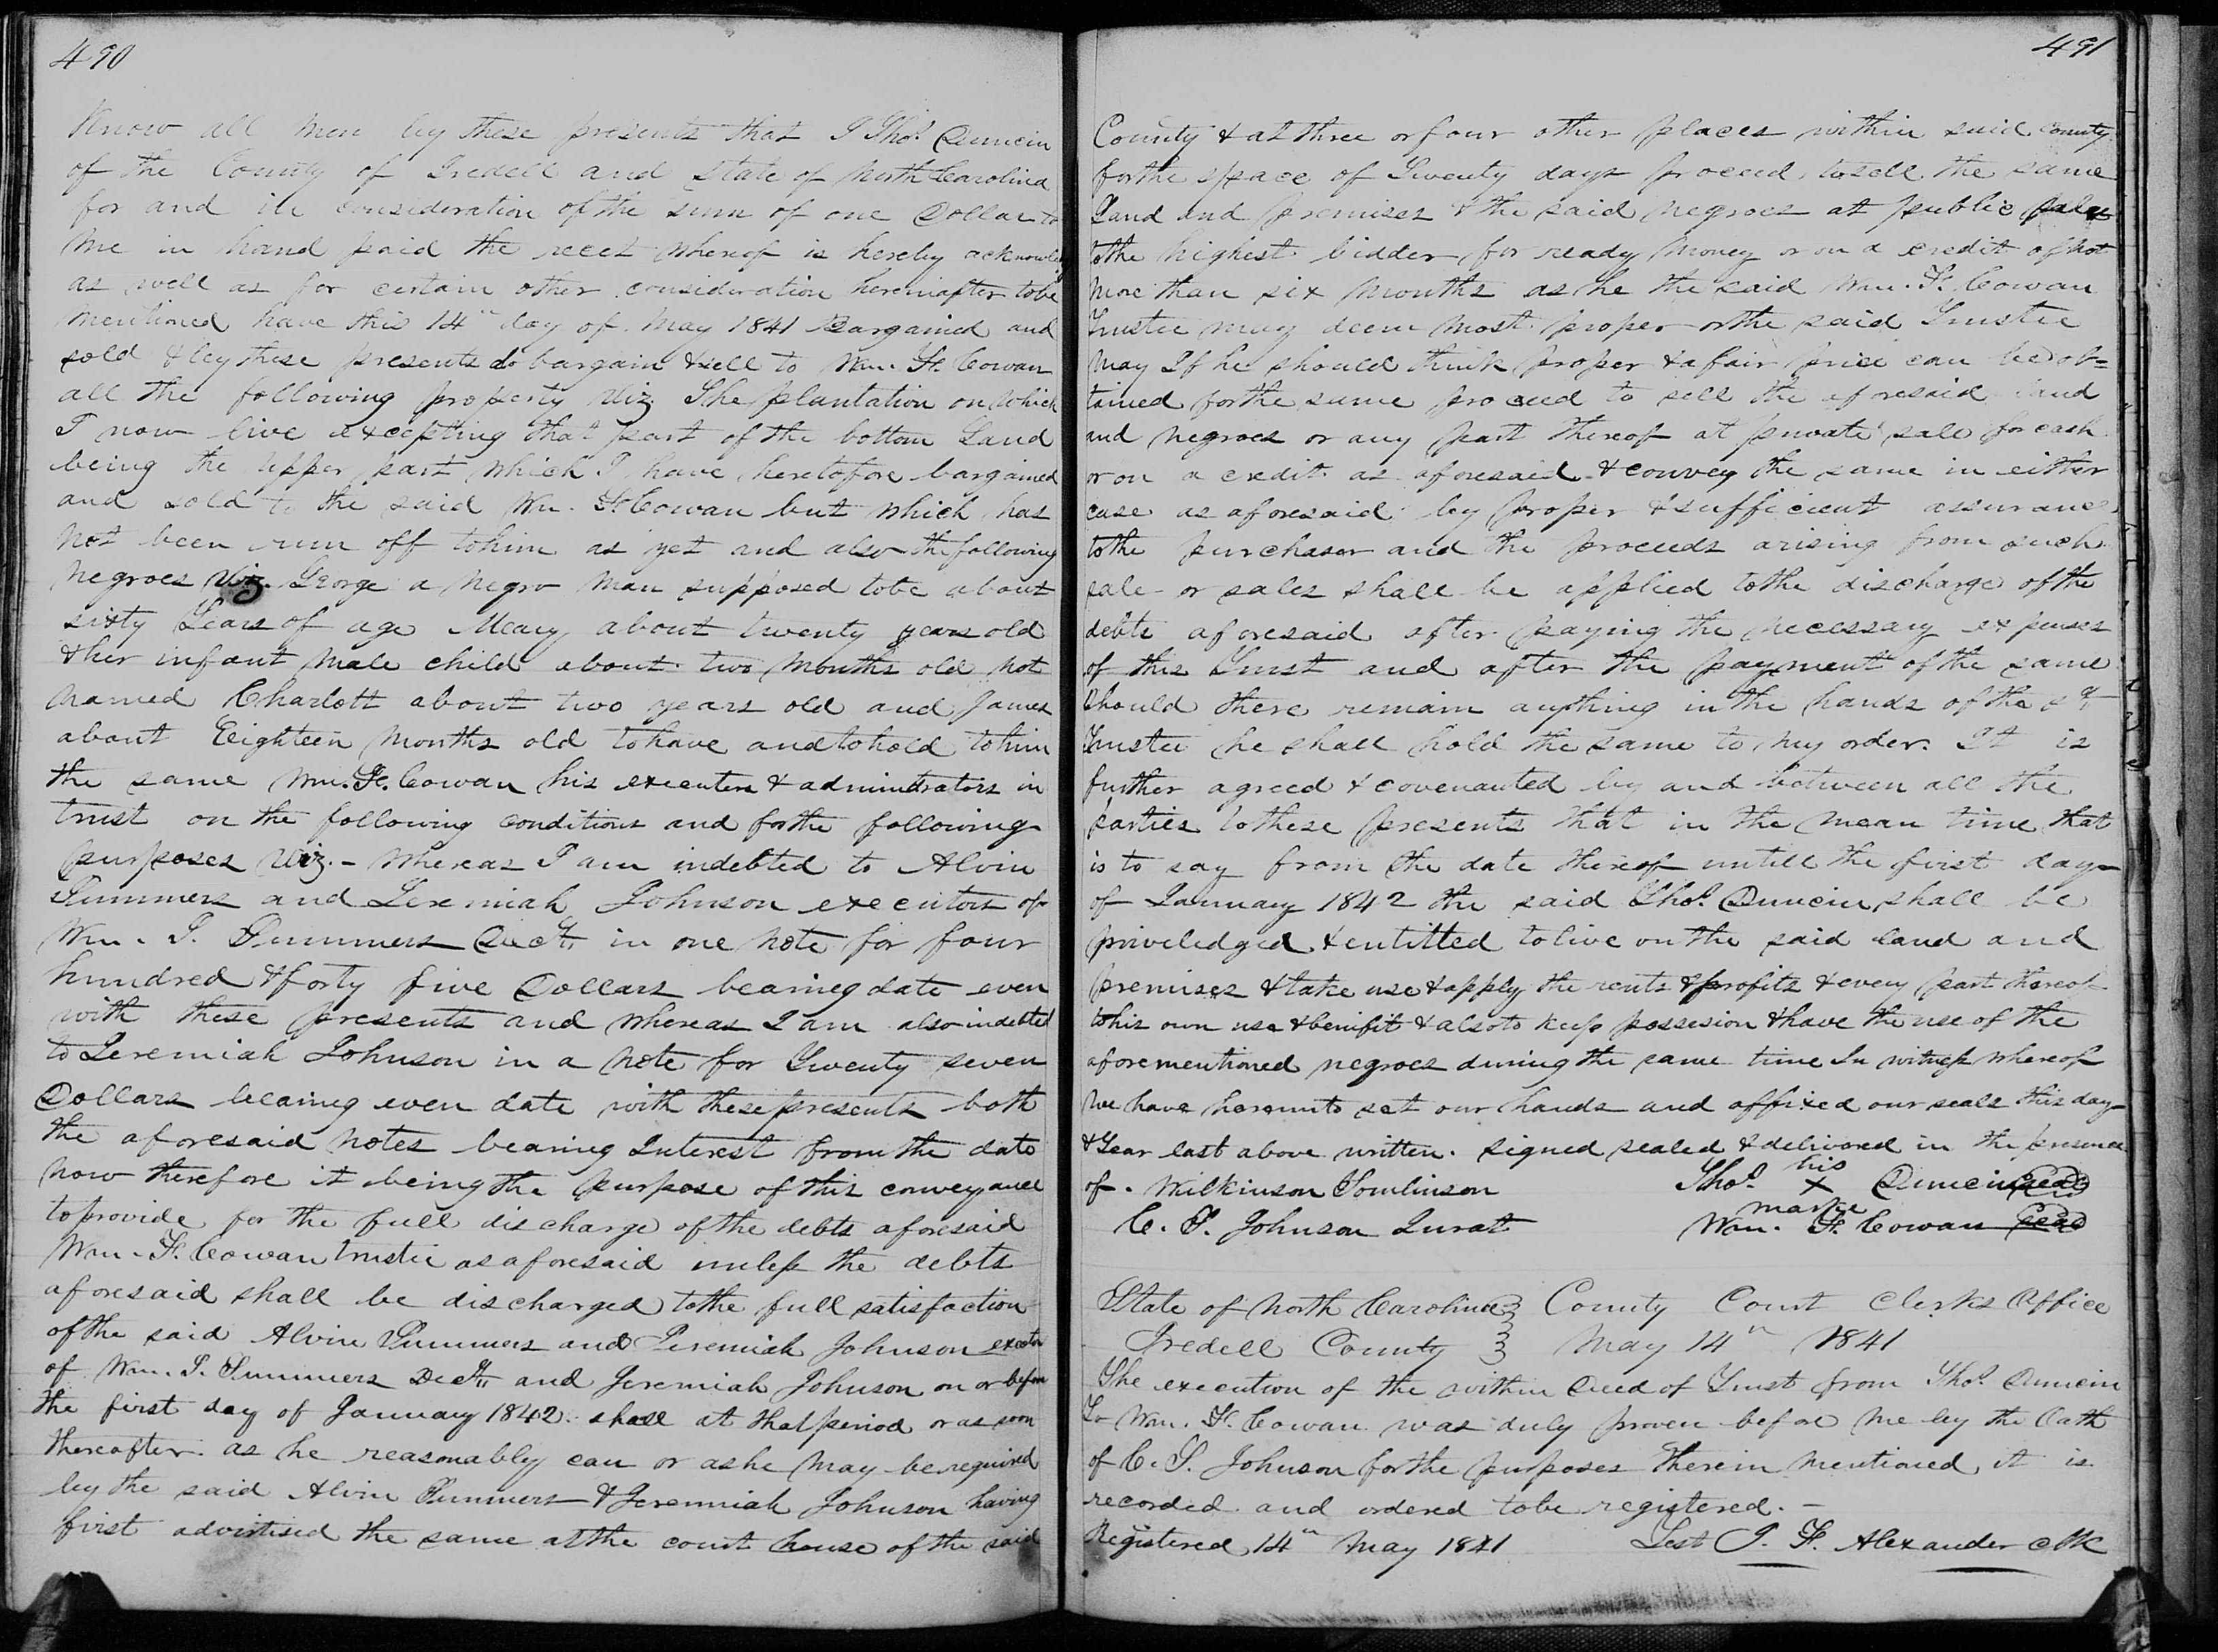 490
Know all men by these presents that I Thos. Duncin
of the County of Iredell and State of North Carolina
for and in consideration of the sum of one Dollar to
me in hand paid the recet whereof is hereby acknowledg
as well as for certain other consideration hereinafter to be
mentioned have this 14th day of May 1841 Bargained and
sold & by these presents do bargain & sell to Wm. F. Cowan
all the following property viz The plantation on which
I now live excepting that part of the bottom Land
being the upper part which I have heretofore bargained
and sold to the said Wm. F. Cowan but which has
not been run off to him as yet and also the following
negroes viz. George a negro man supposed to be about
sixty Years of age Meary about twenty years old
& her infant male child about two months old not
named Charlott about two years old and James
about Eighteen months old to have and to hold to him
the same Wm. F. Cowan his executors & admimistrators in
trust on the following conditions and for the following
purposes viz. - whereas I am indebted to Alvin
Summers and Jeremiah Johnson executors of
Wm. S. Summers Decd. in one note for four
hundred & forty five Dollars bearing date even
with these presents and whereas I am also indebted
to Jeremiah Johnson in a note for Twenty seven
Dollars bearing even date with these presents both
the aforesaid notes bearing Interest from the date
now therefore it being the purpose of this conveyance
to provide for the full discharge of the debts aforesaid
Wm. F. Cowan trustee as aforesaid unless the debts
aforesaid shall be discharged to the full satisfaction
of the said Alvin Summers and Jeremiah Johnson exectr
of Wm. S. Summers Decd. and Jeremiah Johnson on or before
the first day of January 1842. shall at that period or as soon
thereafter as he reasonably can or as he may be required
by the said Alvin Summers & Jeremiah Johnson having
first advirtised the same at the court house of the said
491
County & at three or four other places within said county
for the space of Twenty days proceed to sell the same
Land and premises & the said negroes at public sale
to the highest bidder for ready money or on a credit of not
more than six months as he the said Wm. F. Cowan
Trustee may deem most proper or the said Trustee
may If he should think proper & a fair price can be ob=
tained for the same proceed to sell the aforesaid land
and negroes or any part thereof at private sale for cash
or on a credit as aforesaid & convey the same in either
case as aforesaid by proper & sufficient assurance
to the purchaser and the proceeds arising from such
sale or sales shall be applied to the discharge of the
debts aforesaid after paying the necessary expenses
of this Trust and after the payment of the same
should there remain anything in the hands of the sd.
Trustee he shall hold the same to my order. It is
further agreed & covenanted by and between all the
parties to these presents that in the mean time that
is to say from the date thereof untill the first day
of January 1842 the said Thos. Duncin shall be
priveledged & entitled to live on the said land and
premises & take use & apply the rents & profits & every part thereof
to his own use & benifit & also to keep possesion & have the use of the
aforementioned negroes during the same time In witness whereof
we have hereunto set our hands and affixed our seals this day
& Year last above written. signed sealed & delivered in the presence
of. Wilkinson Tomlinson Thos. his X marke Duncin seal
C. S. Johnson Jurat Wm. F. Cowan seal
State of North Carolina } County Court Clerks Office
Iredell County } May 14th 1841
The execution of the within Deed of Trust from Thos. Duncin
To Wm. F. Cowan was duly proven before me by the Oath
of C. S. Johnson for the purposes therein mentioned, it is
recorded and ordered to be registered. -
Registered 14th May 1841 Test J. F. Alexander clk